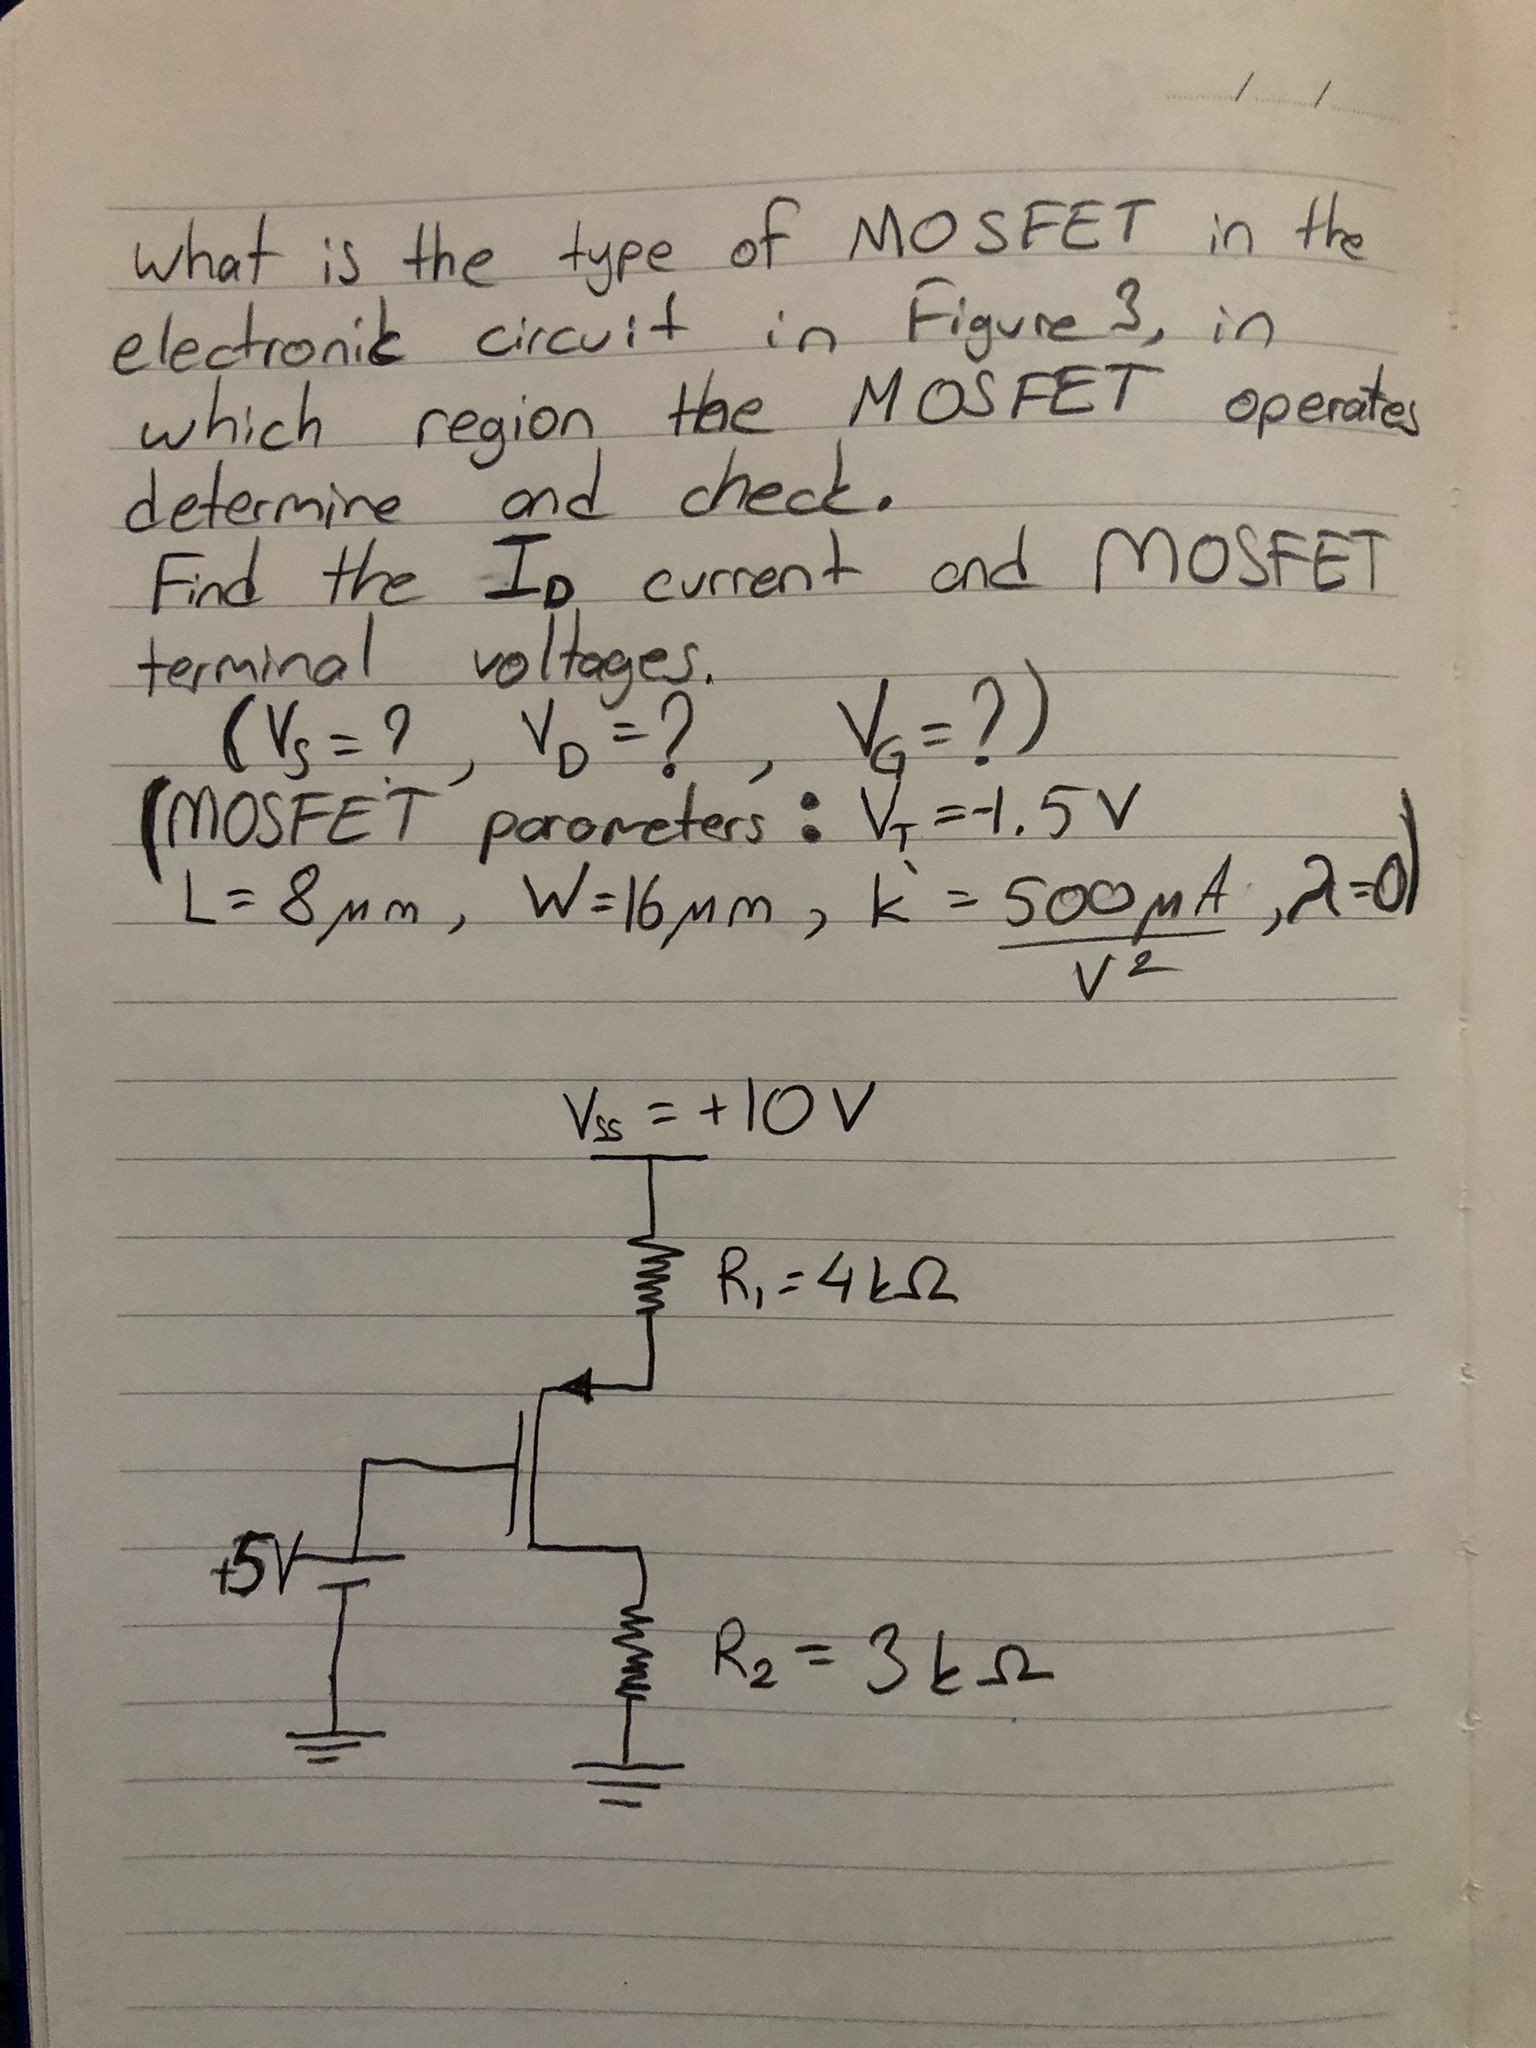 / /
What is the type of MOSFET in the
electronic circuit in Figure 3, in
which region the MOSFET operates
determine and check.
Find the I_D current and MOSFET
terminal voltages.
(V_S = ? , V_D = ? , V_G = ?)
(MOSFET parameters : V_T = -1.5 V
L = 8 μm, W = 16 μm, k' = 500 μA / V², λ = 0)
V_SS = +10 V
R₁ = 4 kΩ
+5V
R₂ = 3 kΩ